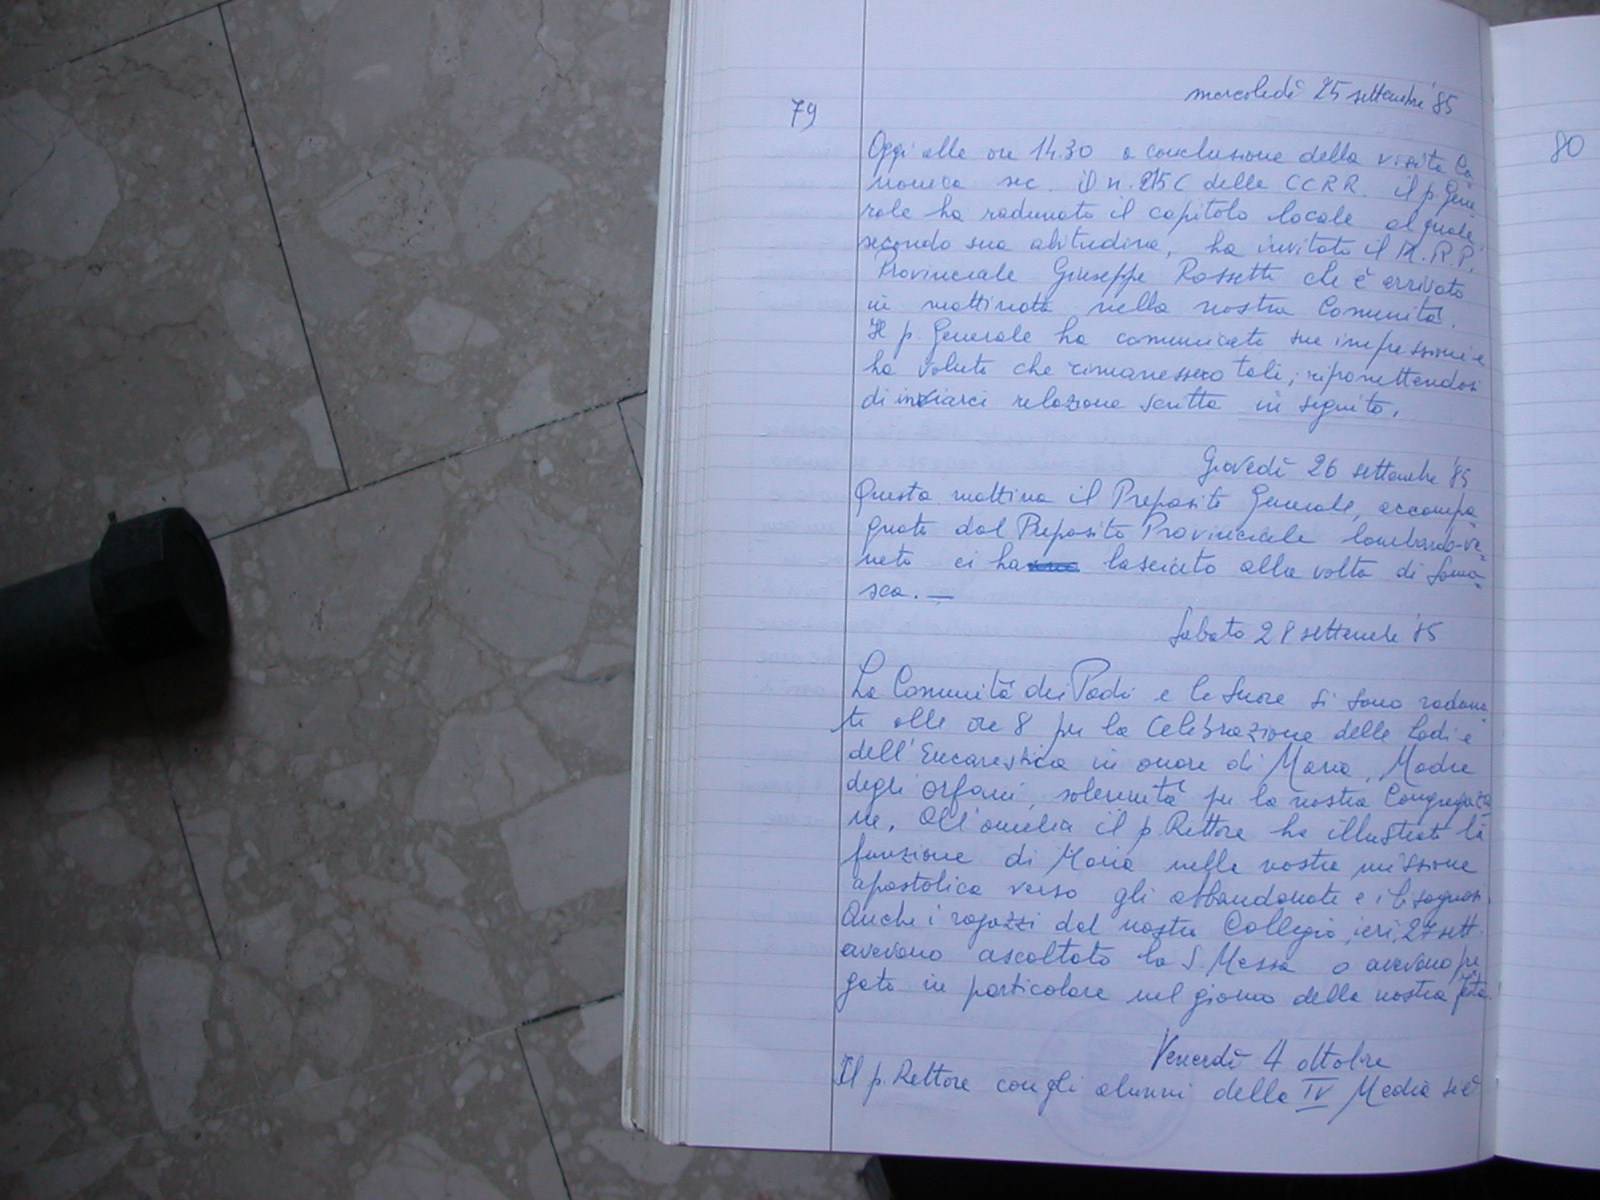 79
mercoledì 25 settembre '85
Oggi alle ore 14.30 a conclusione della visita Ca=
nonica sec. il n. 215 C delle CCRR. il p. Gene
rale ha radunato il capitolo locale al quale,
secondo sua abitudine, ha invitato il M.R.P.
Provinciale Giuseppe Rossetti che è arrivato
in mattinata nella nostra Comunità.
Il p. Generale ha comunicato sue impressioni e
ha voluto che rimanessero tali, ripromettendosi
di inviarci relazione scritta in seguito.
Giovedì 26 settembre '85
Questa mattina il Preposito Generale, accompa
gnato dal Preposito Provinciale lombardo-ve=
neto ci ha lasciato alla volta di Soma=
sca. —
Sabato 28 settembre '85
La Comunità dei Padri e le Suore si sono raduna
te alle ore 8 per la Celebrazione delle Lodi e
dell'Eucarestica in onore di Maria, Madre
degli orfani, solennità per la nostra Congregazio
ne. All'omelia il p. Rettore ha illustrato la
funzione di Maria nella nostra missione
apostolica verso gli abbandonati e i bisognosi.
Anche i ragazzi del nostro Collegio, ieri, 27 sett.
avevano ascoltato la S. Messa o avevano pre
gato in particolare nel giorno della nostra festa.
Venerdì 4 ottobre
Il p. Rettore con gli alunni della IV Media si è
80